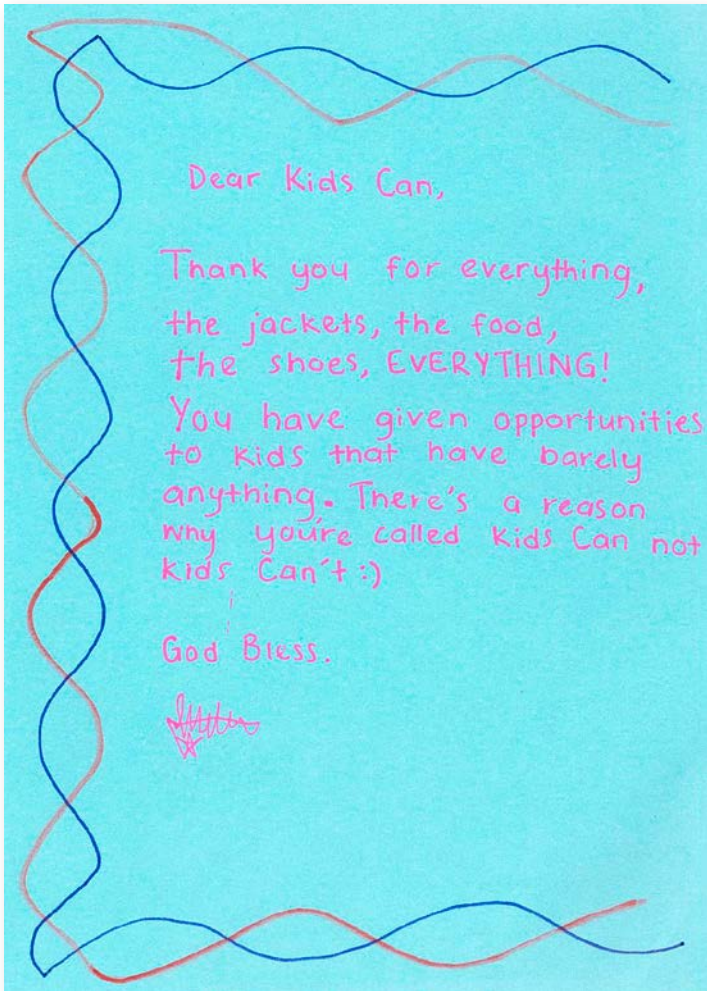 Dear Kids Can,
Thank you for everything,
the jackets, the food,
the shoes, EVERYTHING!
You have given opportunities
to kids that have barely
anything. There's a reason
why you're called Kids Can not
kids Can't :)
God Bless.